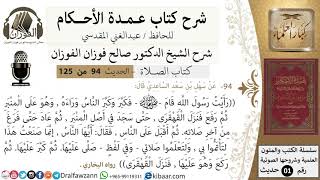 شرح كتاب عمدة الأحكام
للحافظ / عبدالغني المقدسي
شرح الشيخ الدكتور صالح فوزان الفوزان
كتاب الصلاة - الحديث 94 من 125
94- عَنْ سَهْلِ بْنِ سَعْدٍ السَّاعِدِيِّ قَالَ:
((رَأَيْتُ رَسُولَ اللَّهِ قَامَ، فَكَبَّرَ وَكَبَّرَ النَّاسُ وَرَاءَهُ، وَهُوَ عَلَى الْمِنْبَرِ
ثُمَّ رَفَعَ فَنَزَلَ الْقَهْقَرَى، حَتَّى سَجَدَ فِي أَصْلِ الْمِنْبَرِ، ثُمَّ عَادَ حَتَّى فَرَغَ
مِنْ آخِرِ صَلَاتِهِ، ثُمَّ أَقْبَلَ عَلَى النَّاسِ، فَقَالَ: أَيُّهَا النَّاسُ، إِنَّمَا صَنَعْتُ هَذَا
لِتَأْتَمُّوا بِي، وَلِتَعَلَّمُوا صَلَاتِي. وَفِي لَفْظٍ: صَلَّى عَلَيْهَا. ثُمَّ كَبَّرَ عَلَيْهَا. ثُمَّ
رَكَعَ وَهُوَ عَلَيْهَا، فَنَزَلَ الْقَهْقَرَى)) رواه البخاري.
الفوزان
كبار العلماء
سلسلة الكتب والمتون
العلمية وشروحها الصوتية
رقم 01 حديث
Dralfawzann
kibaar.com